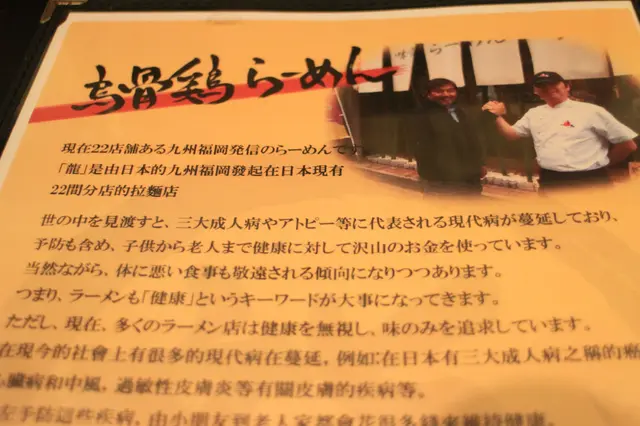 烏骨鶏らーめん
らーめん
現在22店舗ある九州福岡発信のらーめんです
「龍」是由日本的九州福岡發起在日本現有
22間分店的拉麵店
世の中を見渡すと、三大成人病やアトピー等に代表される現代病が蔓延しており、
予防も含め、子供から老人まで健康に対して沢山のお金を使っています。
当然ながら、体に悪い食事も敬遠される傾向になりつつあります。
つまり、ラーメンも「健康」というキーワードが大事になってきます。
ただし、現在、多くのラーメン店は健康を無視し、味のみを追求しています。
在現今的社會上有很多的現代病在蔓延，例如:在日本有三大成人病之稱的癌
心臟病和中風，過敏性皮膚炎等有關皮膚的疾病等。
預防這些疾病，由小朋友到老人家都會花很多錢來維持健康。